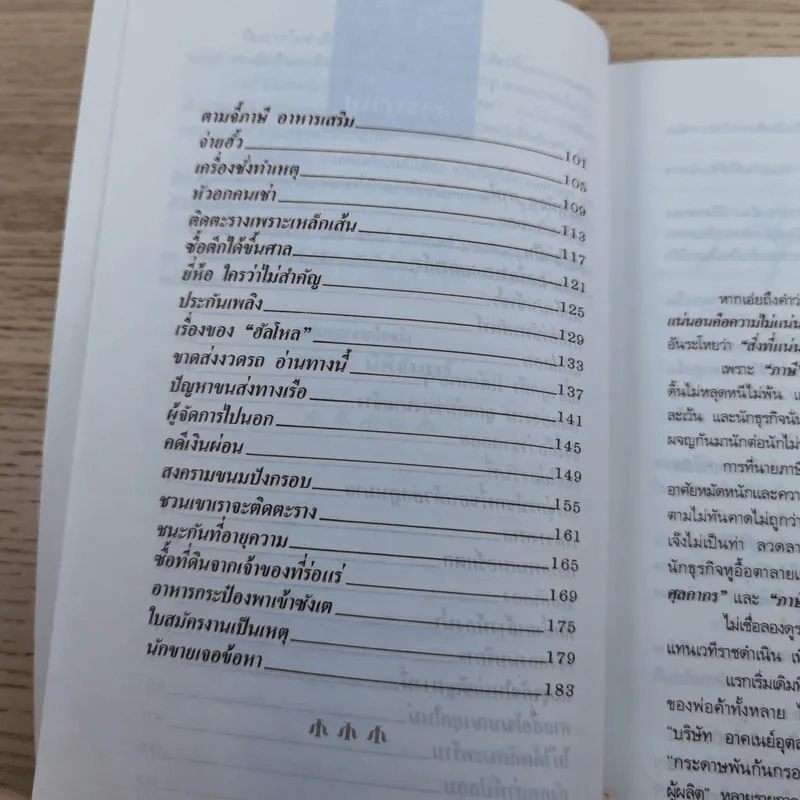 ตามจี้ภาษี อาหารเสริม 101
จ่ายฮั้ว 105
เครื่องชั่งทำเหตุ 109
หัวอกคนเช่า 113
ติดตะรางเพราะเหล็กเส้น 117
ซื้อตึกได้ขึ้นศาล 121
ยี่ห้อ ใครว่าไม่สำคัญ 125
ประกันเพลิง 129
เรื่องของ "ฮัลโหล" 133
ขาดส่งงวดรถ อ่านทางนี้ 137
ปัญหาขนส่งทางเรือ 141
ผู้จัดการไปนอก 145
คดีเงินผ่อน 149
สงครามขนมปังกรอบ 155
ชวนเขาเราจะติดตะราง 161
ชนะกันที่อายุความ 165
ซื้อที่ดินจากเจ้าของที่ร่อแร่ 169
อาหารกระป๋องพาเข้าซังเต 175
ใบสมัครงานเป็นเหตุ 179
นักขายเจอข้อหา 183
หากเอ่ยถึงคำว่า
แน่นอนคือความไม่แน่น
อันระโหยว่า "สิ่งที่แน่น
เพราะ "ภาษี
ดิ้นไม่หลุดหนีไม่พ้น
ละเว้น และนักธุรกิจนั่น
ผจญกันมานักต่อนักไม่ว
การที่นายภาษี
อาศัยหมัดหนักและควา
ตามไม่ทันคาดไม่ถูกว่า
เจ๊งไม่เป็นท่า ลวดลา
นักธุรกิจหูอื้อตาลายเ
ศุลกากร" และ "ภาษี
ไม่เชื่อลองดูร
แทนเวทีราชดำเนิน เพ
แรกเริ่มเดิมที
ของพ่อค้าทั้งหลาย
"บริษัท อาคเนย์อุตส
"กระดาษพันก้นกรอ
ผู้ผลิต" หลายราย